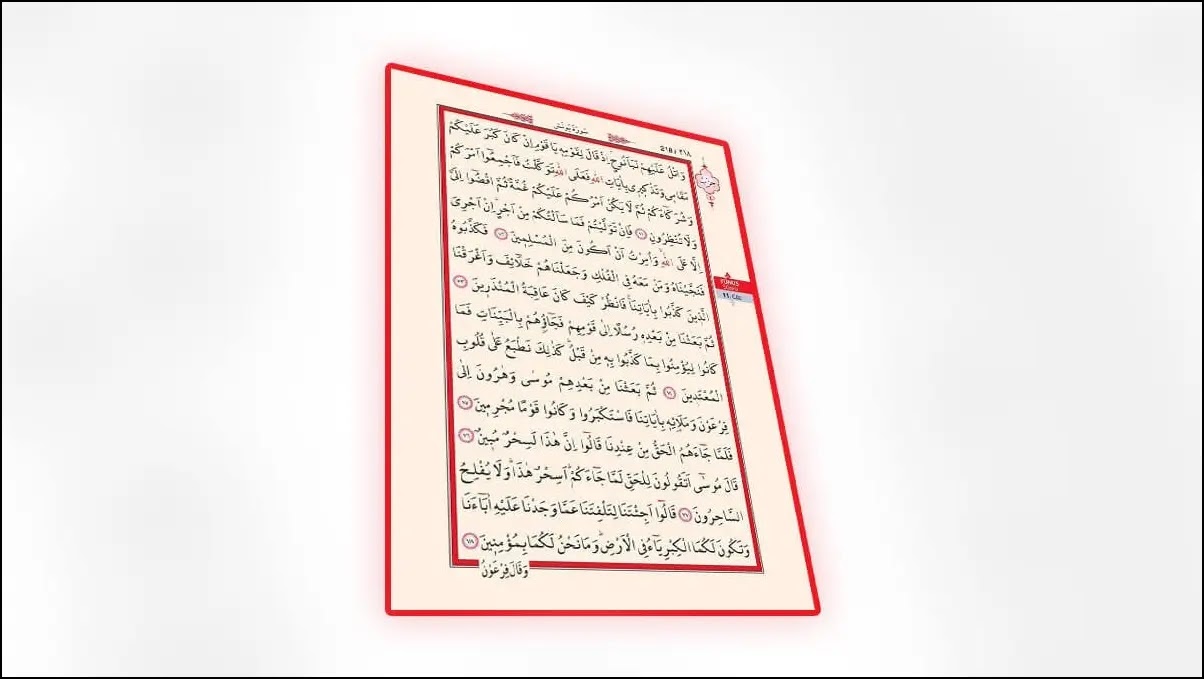 سورة يونس
218 / ٢١٨
وَاتْلُ عَلَيْهِمْ نَبَاَ نُوحٍ اِذْ قَالَ لِقَوْمِهٖ يَا قَوْمِ اِنْ كَانَ كَبُرَ عَلَيْكُمْ
مَقَامٖى وَتَذْكٖيرٖى بِاٰيَاتِ اللّٰهِ فَعَلَى اللّٰهِ تَوَكَّلْتُ فَاَجْمِعُٓوا اَمْرَكُمْ
وَشُرَكَٓاءَكُمْ ثُمَّ لَا يَكُنْ اَمْرُكُمْ عَلَيْكُمْ غُمَّةً ثُمَّ اقْضُٓوا اِلَىَّ
وَلَا تُنْظِرُونِ ﴿٧١﴾ فَاِنْ تَوَلَّيْتُمْ فَمَا سَاَلْتُكُمْ مِنْ اَجْرٍ اِنْ اَجْرِىَ
اِلَّا عَلَى اللّٰهِ وَاُمِرْتُ اَنْ اَكُونَ مِنَ الْمُسْلِمٖينَ ﴿٧٢﴾ فَكَذَّبُوهُ
فَنَجَّيْنَاهُ وَمَنْ مَعَهُ فِى الْفُلْكِ وَجَعَلْنَاهُمْ خَلَٓائِفَ وَاَغْرَقْنَا
الَّذٖينَ كَذَّبُوا بِاٰيَاتِنَا فَانْظُرْ كَيْفَ كَانَ عَاقِبَةُ الْمُنْذَرٖينَ ﴿٧٣﴾
ثُمَّ بَعَثْنَا مِنْ بَعْدِهٖ رُسُلًا اِلٰى قَوْمِهِمْ فَجَٓاؤُهُمْ بِالْبَيِّنَاتِ فَمَا
كَانُوا لِيُؤْمِنُوا بِمَا كَذَّبُوا بِهٖ مِنْ قَبْلُ كَذٰلِكَ نَطْبَعُ عَلٰى قُلُوبِ
الْمُعْتَدٖينَ ﴿٧٤﴾ ثُمَّ بَعَثْنَا مِنْ بَعْدِهِمْ مُوسٰى وَهٰرُونَ اِلٰى
فِرْعَوْنَ وَمَلَا۬ئِهٖ بِاٰيَاتِنَا فَاسْتَكْبَرُوا وَكَانُوا قَوْمًا مُجْرِمٖينَ ﴿٧٥﴾
فَلَمَّا جَٓاءَهُمُ الْحَقُّ مِنْ عِنْدِنَا قَالُٓوا اِنَّ هٰذَا لَسِحْرٌ مُبٖينٌ ﴿٧٦﴾
قَالَ مُوسٰٓى اَتَقُولُونَ لِلْحَقِّ لَمَّا جَٓاءَكُمْ اَسِحْرٌ هٰذَا وَلَا يُفْلِحُ
السَّاحِرُونَ ﴿٧٧﴾ قَالُٓوا اَجِئْتَنَا لِتَلْفِتَنَا عَمَّا وَجَدْنَا عَلَيْهِ اٰبَٓاءَنَا
وَتَكُونَ لَكُمَا الْكِبْرِيَٓاءُ فِى الْاَرْضِ وَمَا نَحْنُ لَكُمَا بِمُؤْمِنٖينَ ﴿٧٨﴾
وَقَالَ فِرْعَوْنُ
YUNUS
11. Cüz